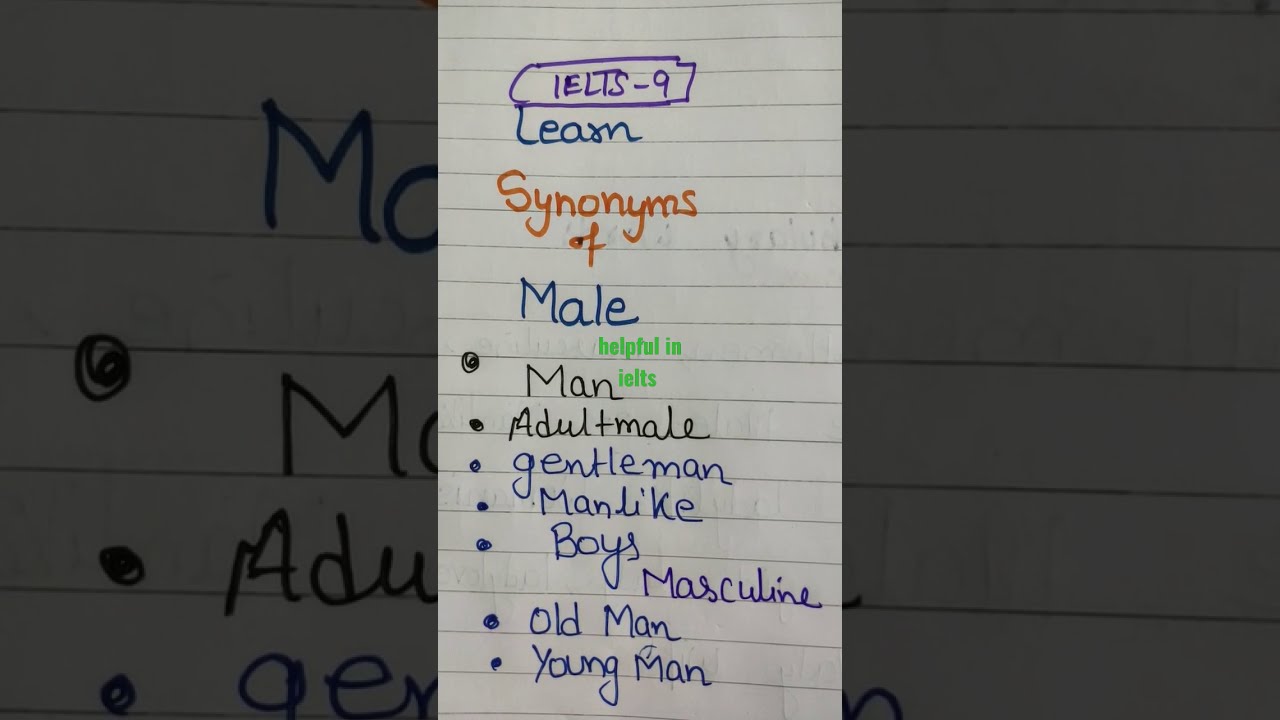 IELTS-9
Learn
Synonyms
of
Male
helpful in
ielts
Man
Adultmale
gentleman
Manlike
Boys
Masculine
Old Man
Young Man